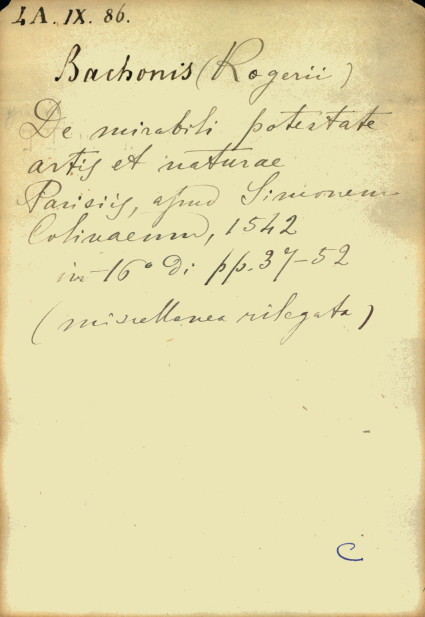 LA. IX. 86.
Bachonis (Rogerii)
De mirabili potestate
artis et naturae
Parisiis, apud Simonem
Colinaeum, 1542
in-16° di pp. 37-52
(miscellanea rilegata)
C